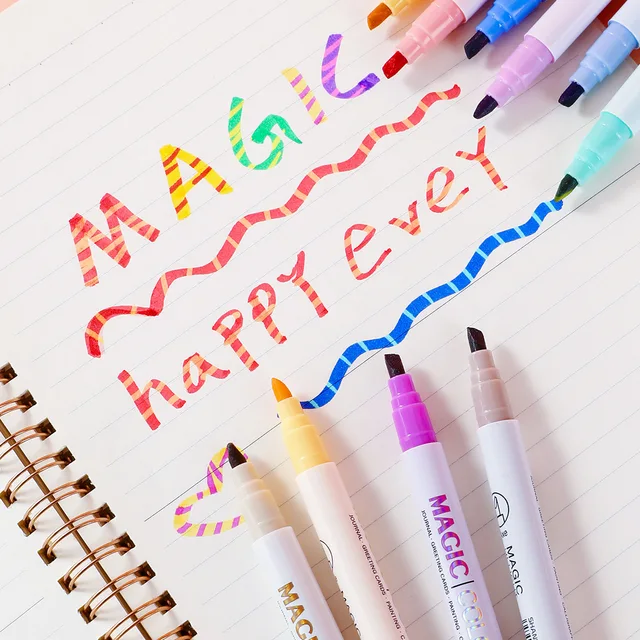 MAGIC
happy every
MAGIC
MAGIC | COL
JOURNAL · GREETING CARDS · PAINTING
JOURNAL · GREETING CARDS · PAINTING
MAGIC